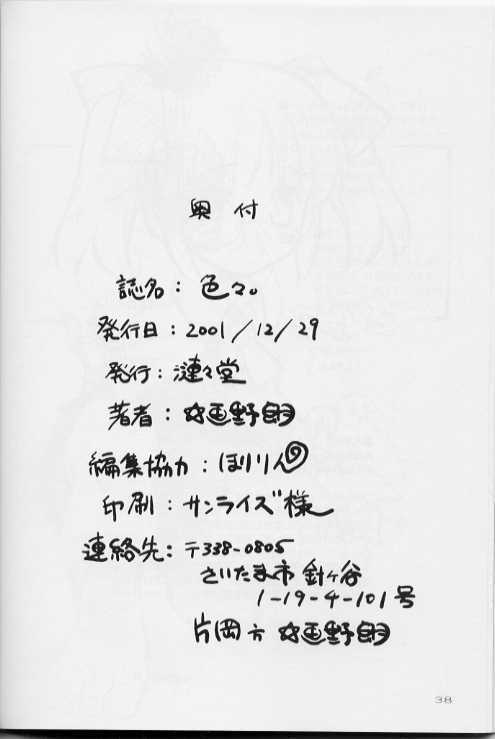 奥付
誌名：色々。
発行日：2001/12/29
発行：漣々堂
著者：☆画野朗
編集協力：ほりりん
印刷：サンライズ様
連絡先：〒338-0805
さいたま市 針ヶ谷
1-19-4-101号
片岡方 ☆画野朗
38